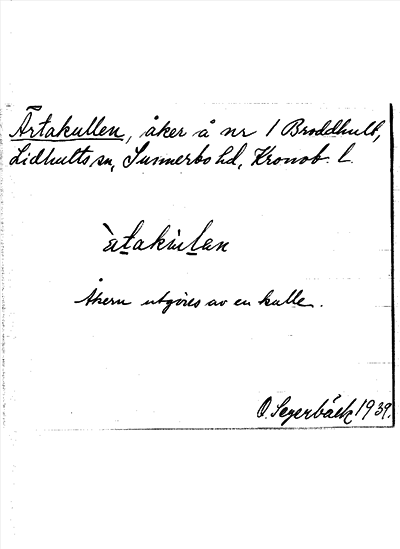 Ärtakullen, åker å nr 1 Broddhult,
Lidhults sn, Sunnerbo hd, Kronob. l.
àtakùlen
Åkern utgöres av en kulle.
O. Segerbäck 1939.